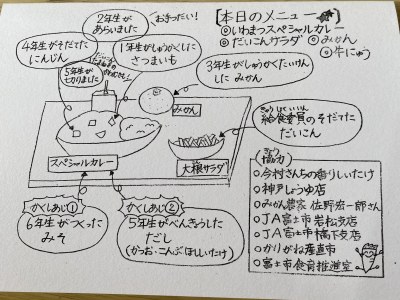 2年生が
あらいました
おきったい!
[本日のメニュー]
◎いわまつスペシャルカレー
◎だいこんサラダ ◎みかん
◎牛にゅう
4年生がそだてた
にんじん
1年生がしゅうかくした
さつまいも
5年生が
切りました
3年生がしゅうかくたいけん
した みかん
みかん
きゅうしょくいいん
給食委員のそだてた
だいこん
スペシャルカレー
大根サラダ
かくしあじ①
6年生がつくった
みそ
かくしあじ②
5年生がべんきょうした
だし
(かつお・こんぶ・ほししいたけ)
きょうりょく
協力
◎今村さんちの香りしいたけ
◎神戸しょうゆ店
◎みかん農家 佐野宏一郎さん
◎JA富士市岩松支店
◎JA富士市橋下支店
◎かりがね産直市
◎富士市食育推進室